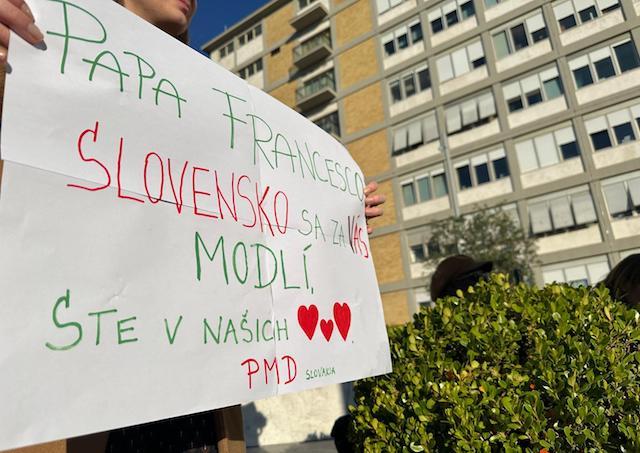 PAPA FRANCESCO
SLOVENSKO SA ZA VÁS
MODLÍ,
STE V NAŠICH
PMD SLOVAKIA